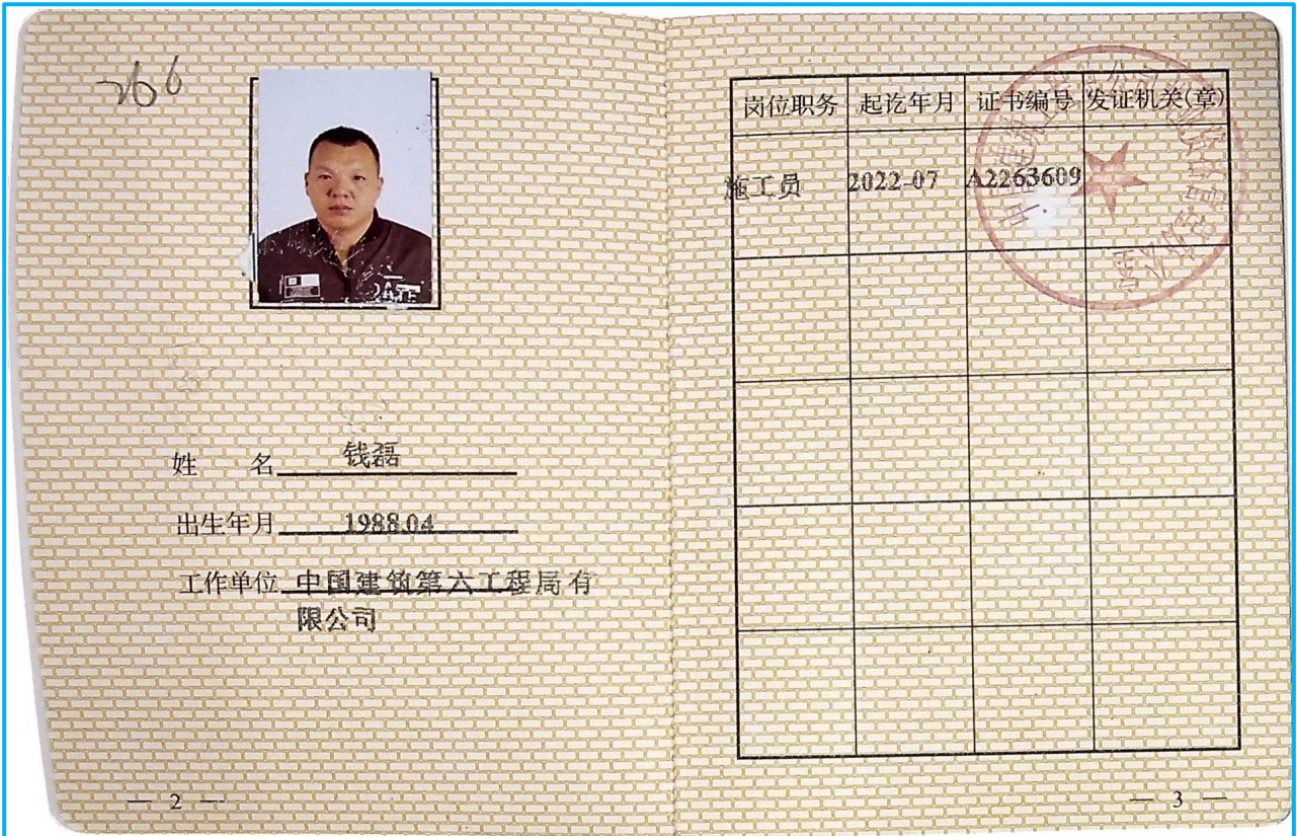 266
姓 名 钱磊
出生年月 1988.04
工作单位 中国建筑第六工程局有
限公司
— 2 —
岗位职务 起讫年月 证书编号 发证机关(章)
施工员 2022-07 A2263609
— 3 —